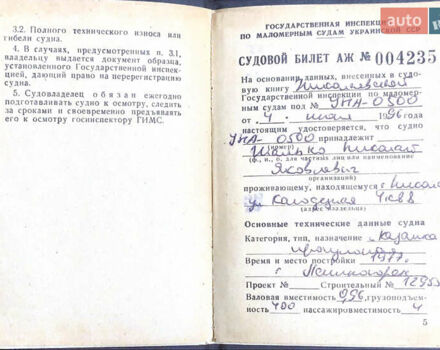 3.2. Полного технического износа или
гибели судна.
4. В случаях, предусмотренных п. 3.1,
владельцу выдается документ образца,
установленного Государственной инспек-
цией, дающий право на перерегистрацию
судна.
5. Судовладелец обязан ежегодно
подготавливать судно к осмотру, следить
за сроками и своевременно предъявлять
его к осмотру госинспектору ГИМС.
auto
ГОСУДАРСТВЕННАЯ ИНСПЕКЦ
ПО МАЛОМЕРНЫМ СУДАМ УКРАИНСКОЙ ССР
СУДОВОЙ БИЛЕТ АЖ № 004235
На основании данных, внесенных в судо-
вую книгу Николаевской
Государственной инспекции по маломер-
ным судам под № УНА-0500
от 4 июля 1996 года
настоящим удостоверяется, что судно
УНА-0500 принадлежит
(номер)
Николай
(ф., и., о. для частных лиц или наименование
Яковлевич
организации)
проживающему, находящемуся г. Никола
ул Колодезная 4 кв 8
(адрес владельца)
Основные технические данные судна
Категория, тип, назначение л. Казанка
прогулочная
Время и место постройки 1977 г.
Проект № Строительный № 12953
Валовая вместимость 0,96, грузоподъем-
ность 400 пассажировместимость 4
5